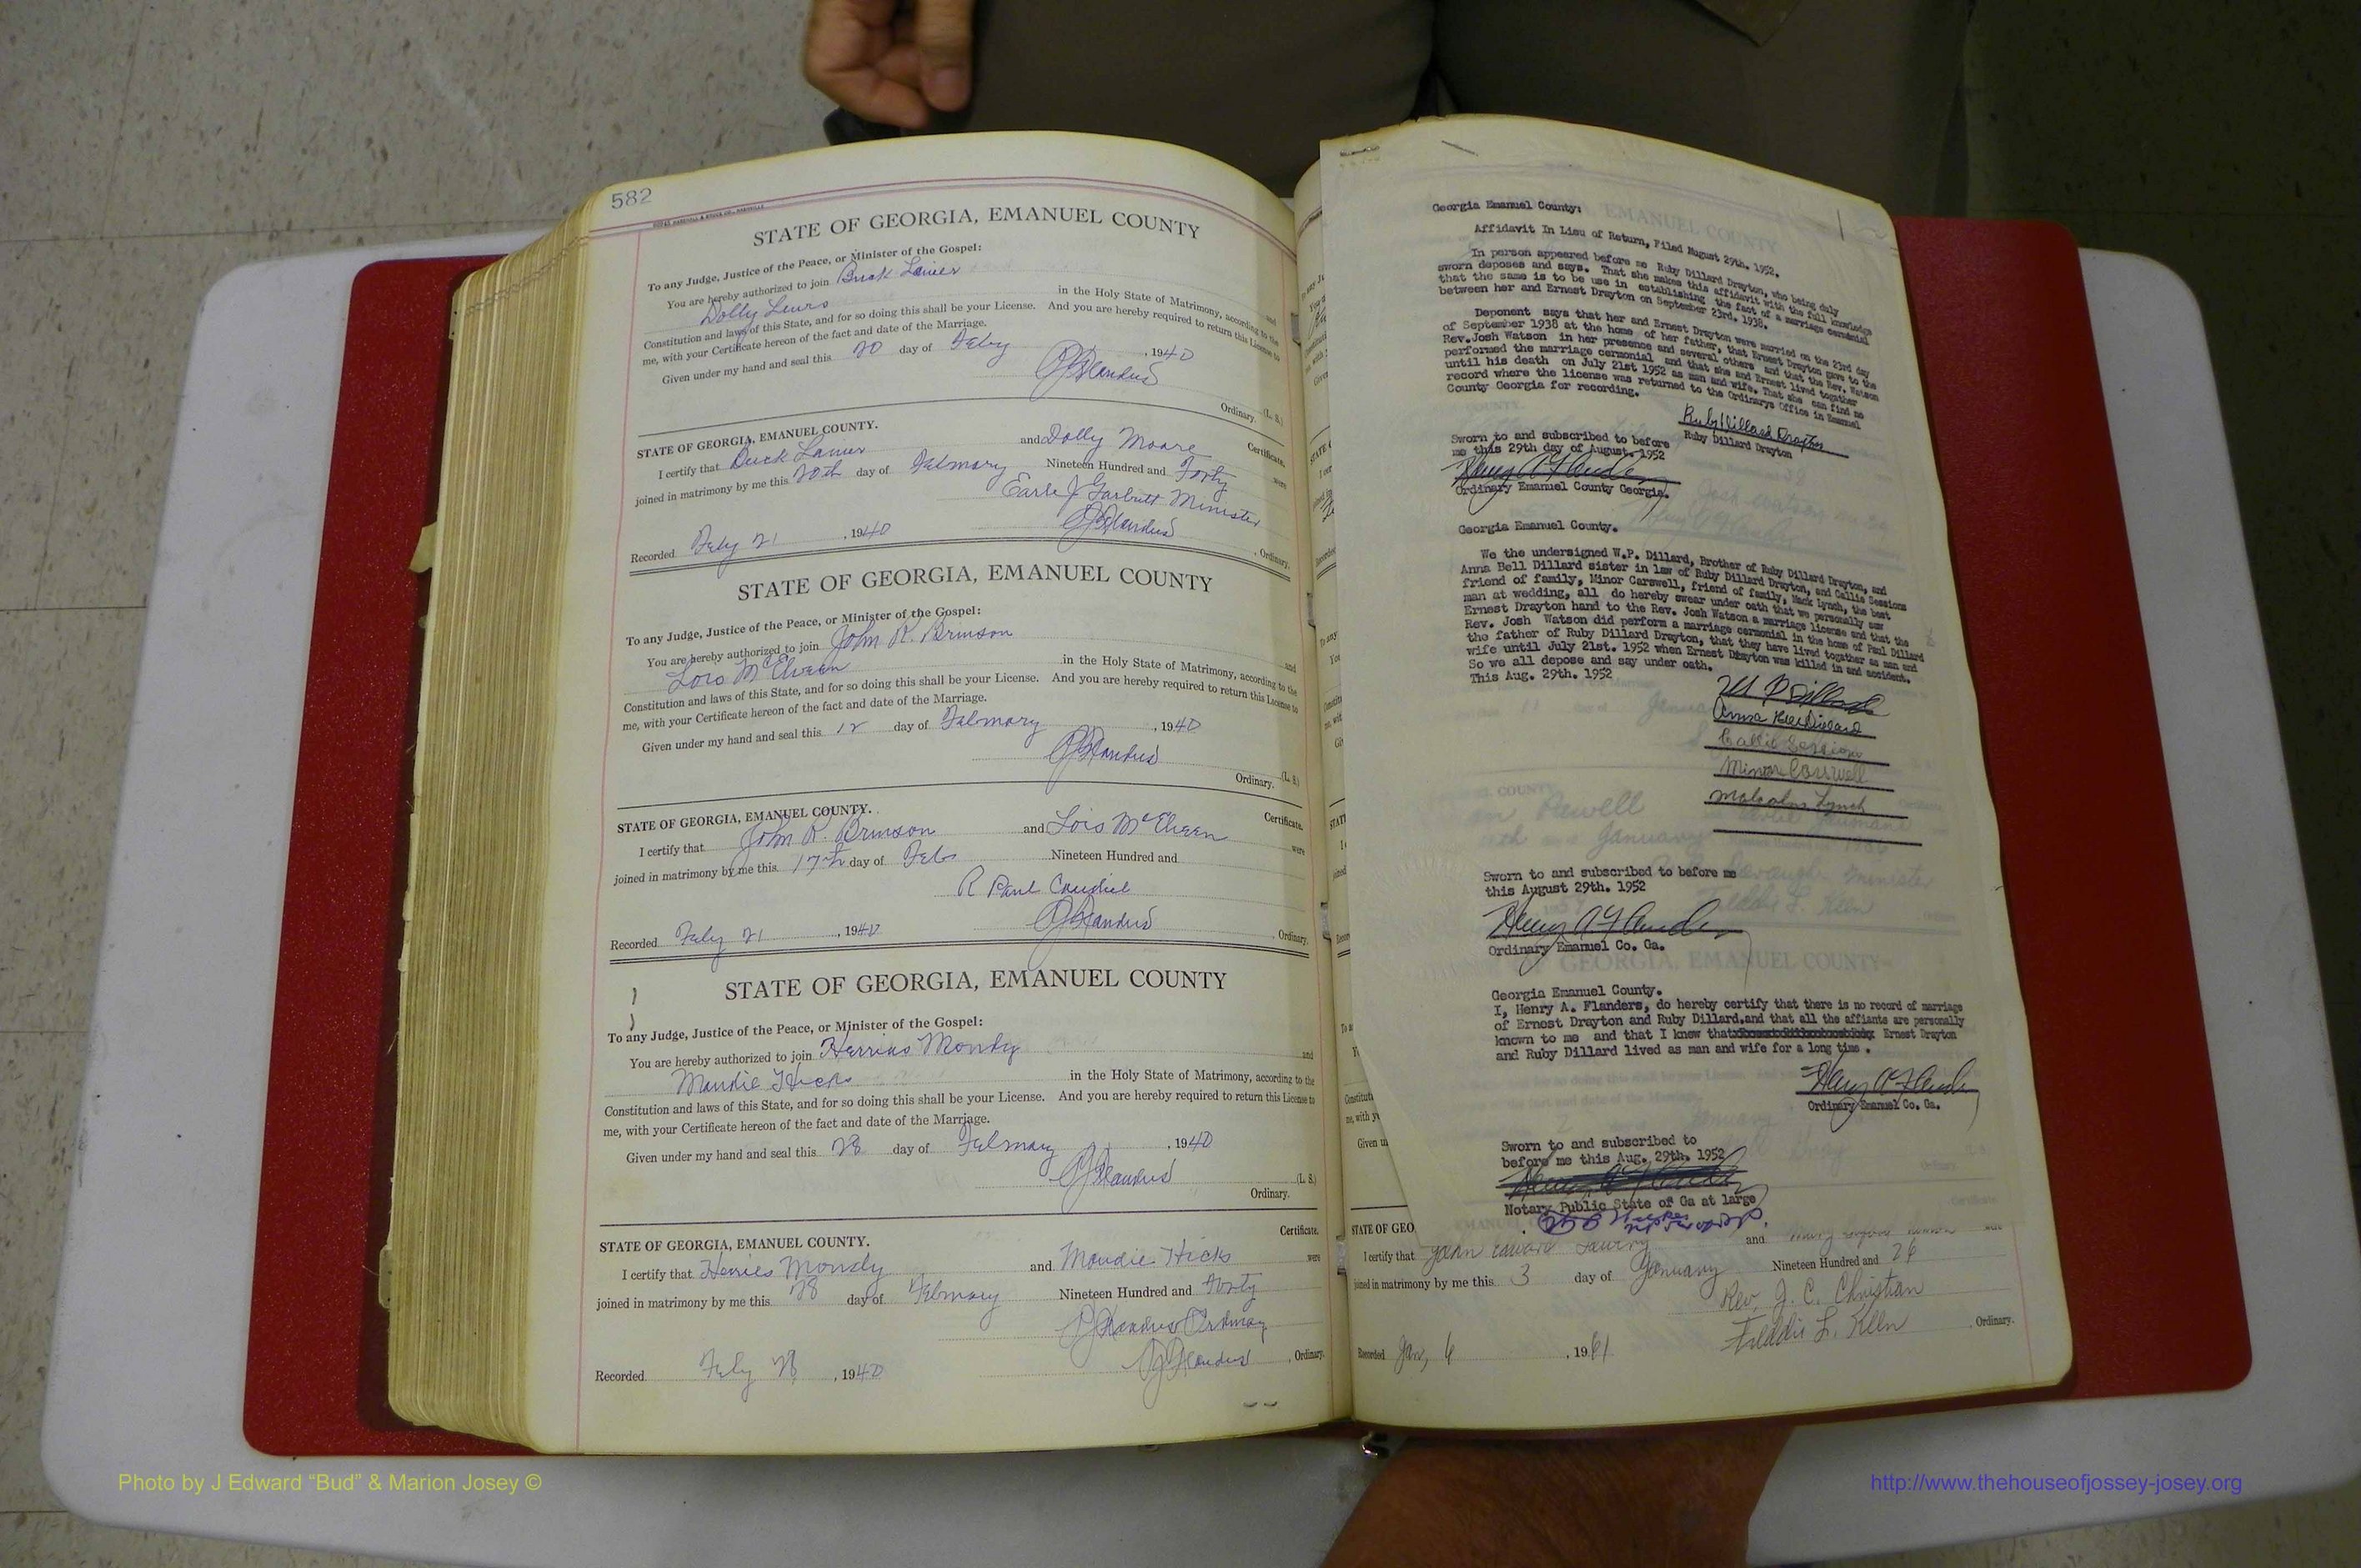 582
STATE OF GEORGIA, EMANUEL COUNTY
To any Judge, Justice of the Peace, or Minister of the Gospel:
You are hereby authorized to join Buck Lanier and
Dolly in the Holy State of Matrimony, according to the
Constitution and laws of this State, and for so doing this shall be your License. And you are hereby required to return this License to
me, with your Certificate hereon of the fact and date of the Marriage.
Given under my hand and seal this 20 day of Feby , 1940
(L. S.)
Ordinary.
STATE OF GEORGIA, EMANUEL COUNTY. Certificate.
I certify that Buck Lanier and Dolly Moore were
joined in matrimony by me this 20th day of February Nineteen Hundred and Forty
Earle J Garbutt Minister
Recorded Feby 21 , 1940 , Ordinary.
STATE OF GEORGIA, EMANUEL COUNTY
To any Judge, Justice of the Peace, or Minister of the Gospel:
You are hereby authorized to join John R. Brinson and
Lois McElveen in the Holy State of Matrimony, according to the
Constitution and laws of this State, and for so doing this shall be your License. And you are hereby required to return this License to
me, with your Certificate hereon of the fact and date of the Marriage.
Given under my hand and seal this 12 day of February , 1940
(L. S.)
Ordinary.
STATE OF GEORGIA, EMANUEL COUNTY. Certificate.
I certify that John R. Brinson and Lois McElveen were
joined in matrimony by me this 17th day of Feb Nineteen Hundred and
R Paul
Recorded Feby 21 , 1940 , Ordinary.
STATE OF GEORGIA, EMANUEL COUNTY
To any Judge, Justice of the Peace, or Minister of the Gospel:
You are hereby authorized to join Mondy and
Maudie Hicks in the Holy State of Matrimony, according to the
Constitution and laws of this State, and for so doing this shall be your License. And you are hereby required to return this License to
me, with your Certificate hereon of the fact and date of the Marriage.
Given under my hand and seal this 28 day of February , 1940
(L. S.)
Ordinary.
STATE OF GEORGIA, EMANUEL COUNTY. Certificate.
I certify that Mondy and Maudie Hicks were
joined in matrimony by me this 28 day of February Nineteen Hundred and Forty
Recorded Feby 28 , 1940 , Ordinary.
Georgia Emanuel County:
Affidavit In Lieu of Return, Filed August 29th. 1952.
In person appeared before me Ruby Dillard Drayton, who being duly
sworn deposes and says. That she makes this affidavit with the full knowledge
that the same is to be use in establishing the fact of a marriage cermonial
between her and Ernest Drayton on September 23rd. 1938.
Deponent says that her and Ernest Drayton were married on the 23rd day
of September 1938 at the home of her father, that Ernest Drayton gave to the
Rev.Josh Watson in her presence and several others and that the Rev. Watson
performed the marriage cermonial and that she and Ernest lived together
until his death on July 21st 1952 as man and wife. That she can find no
record where the license was returned to the Ordinarys Office in Emanuel
County Georgia for recording.
Ruby Dillard Drayton
Ruby Dillard Drayton
Sworn to and subscribed to before
me this 29th day of August. 1952
Henry A Flanders
Ordinary Emanuel County Georgia.
Georgia Emanuel County.
We the undersigned W.P. Dillard, Brother of Ruby Dillard Drayton, and
Anna Bell Dillard sister in law of Ruby Dillard Drayton, and Callie Sessions
friend of family, Minor Carswell, friend of family, Mack Lynch, the best
man at wedding, all do hereby swear under oath that we personally saw
Ernest Drayton hand to the Rev. Josh Watson a marriage license and that the
Rev. Josh Watson did perform a marriage cermonial in the home of Paul Dillard
the father of Ruby Dillard Drayton, that they have lived together as man and
wife until July 21st. 1952 when Ernest Drayton was killed in and accident.
So we all depose and say under oath.
This Aug. 29th. 1952
W P Dillard
Anna Bell Dillard
Callie Sessions
Minor Carswell
Malcolm Lynch
Sworn to and subscribed to before me
this August 29th. 1952
Henry A Flanders
Ordinary Emanuel Co. Ga.
Georgia Emanuel County.
I, Henry A. Flanders, do hereby certify that there is no record of marriage
of Ernest Drayton and Ruby Dillard,and that all the affiants are personally
known to me and that I knew that Ernest Drayton
and Ruby Dillard lived as man and wife for a long time .
Henry A Flanders
Ordinary Emanuel Co. Ga.
Sworn to and subscribed to
before me this Aug. 29th. 1952
Henry A Flanders
Notary Public State of Ga at large
STATE OF GEO
I certify that John Edward and Mary were
joined in matrimony by me this 3 day of January Nineteen Hundred and 26
Rev. J. C. Christian
Freddie L. Keen , Ordinary.
Recorded Jan, 6 , 1961
Photo by J Edward “Bud” & Marion Josey ©
http://www.thehouseofjossey-josey.org